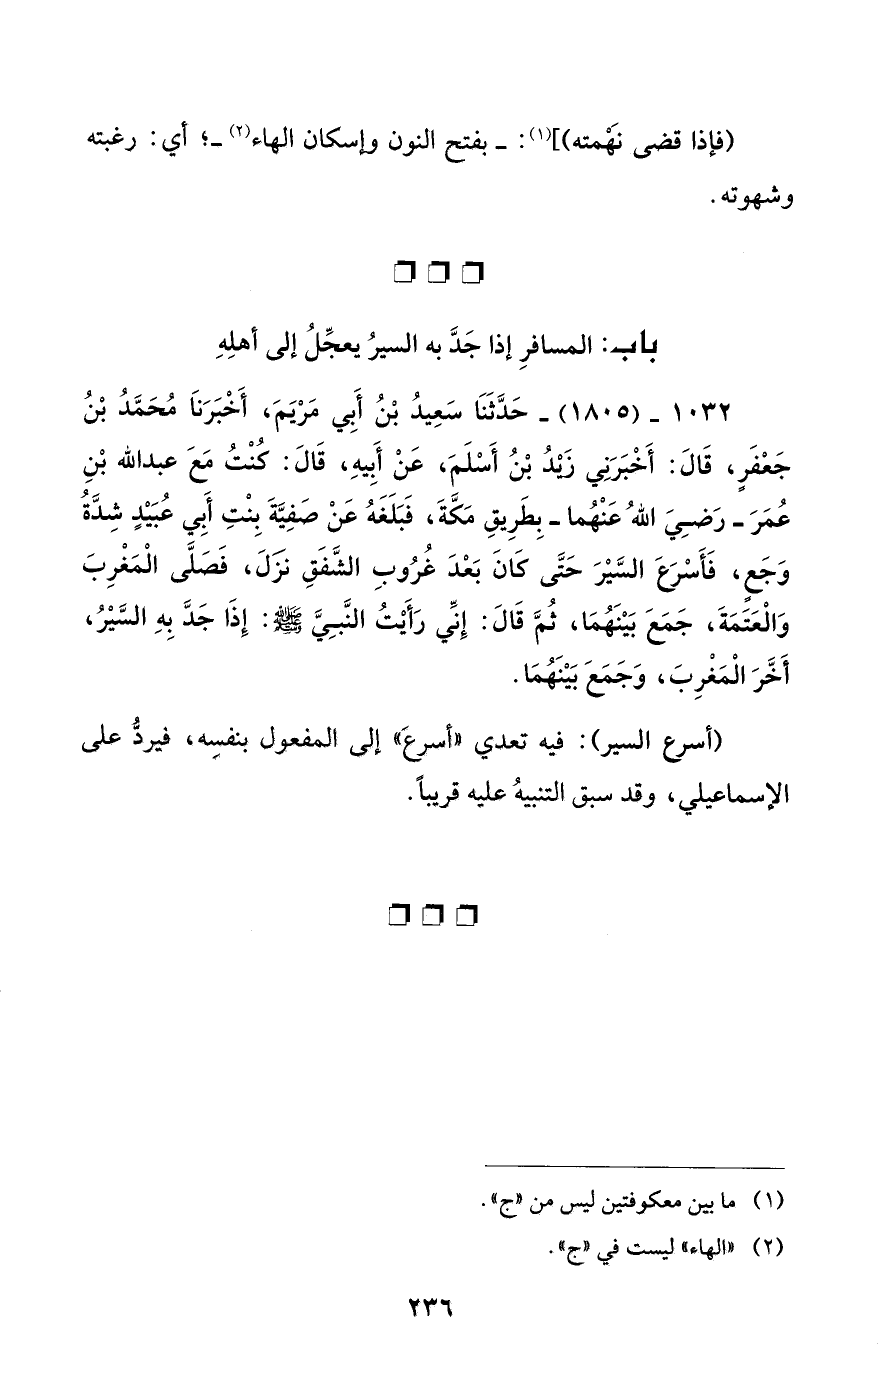 (فإذا قضى نَهْمته)](١): ـ بفتح النون وإسكان الهاء(٢) ـ؛ أي: رغبته
وشهوته.
❒ ❒ ❒
باب: المسافرِ إذا جَدَّ به السيرُ يعجِّلُ إلى أهلِهِ
١٠٣٢ ـ (١٨٠٥) ـ حَدَّثَنَا سَعِيدُ بْنُ أَبِي مَرْيَمَ، أَخْبَرَنَا مُحَمَّدُ بْنُ
جَعْفَرٍ، قَالَ: أَخْبَرَنِي زَيْدُ بْنُ أَسْلَمَ، عَنْ أَبِيهِ، قَالَ: كُنْتُ مَعَ عبدالله بْنِ
عُمَرَ ـ رَضيَ اللهُ عَنْهُما ـ بِطَرِيقِ مَكَّةَ، فَبَلَغَهُ عَنْ صَفِيَّةَ بِنْتِ أَبِي عُبَيْدٍ شِدَّةُ
وَجَعٍ، فَأَسْرَعَ السَّيْرَ حَتَّى كَانَ بَعْدَ غُرُوبِ الشَّفَقِ نَزَلَ، فَصَلَّى الْمَغْرِبَ
وَالْعَتَمَةَ، جَمَعَ بَيْنَهُمَا، ثُمَّ قَالَ: إِنِّي رَأَيْتُ النَّبِيَّ ﷺ: إِذَا جَدَّ بِهِ السَّيْرُ،
أَخَّرَ الْمَغْرِبَ، وَجَمَعَ بَيْنَهُمَا.
(أسرع السير): فيه تعدي «أسرعَ» إلى المفعول بنفسِه، فيردُّ على
الإسماعيلي، وقد سبق التنبيهُ عليه قريباً.
❒ ❒ ❒
(١) ما بين معكوفتين ليس من «ج».
(٢) «الهاء» ليست في «ج».
٢٣٦